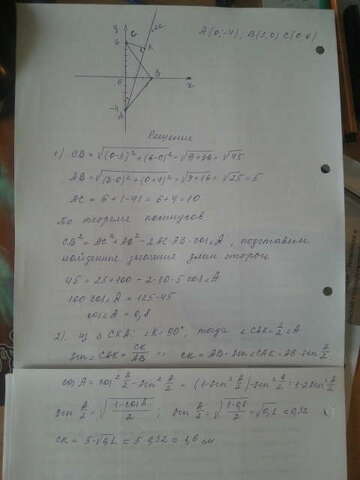 A(0;-4); B(3;0) C(0;6)
Решение
1) CB = √(0-3)² + (6-0)² = √9+36 = √45
AB = √(3-0)² + (0+4)² = √9+16 = √25 = 5
AC = 6 + |-4| = 6+4 = 10
По теореме косинусов
CB² = AC² + AB² - 2AC·AB·cosA, подставим
найденные значения длин сторон
45 = 25+100 - 2·10·5 cosA
100 cosA = 125-45
cosA = 0,8
2) из ∆ CKA: ∠K = 90°, тогда
sin
cosA = cos² A/2 - sin² A/2 = (1-sin² A/2) - sin² A/2 = 1-2sin² A/2
sin A/2 = √(1-cosA)/2; sin A/2 = √(1-0,8)/2 = √0,1 = 0,32
CK = 5·√0,1 = 5·0,32 = 1,6 см